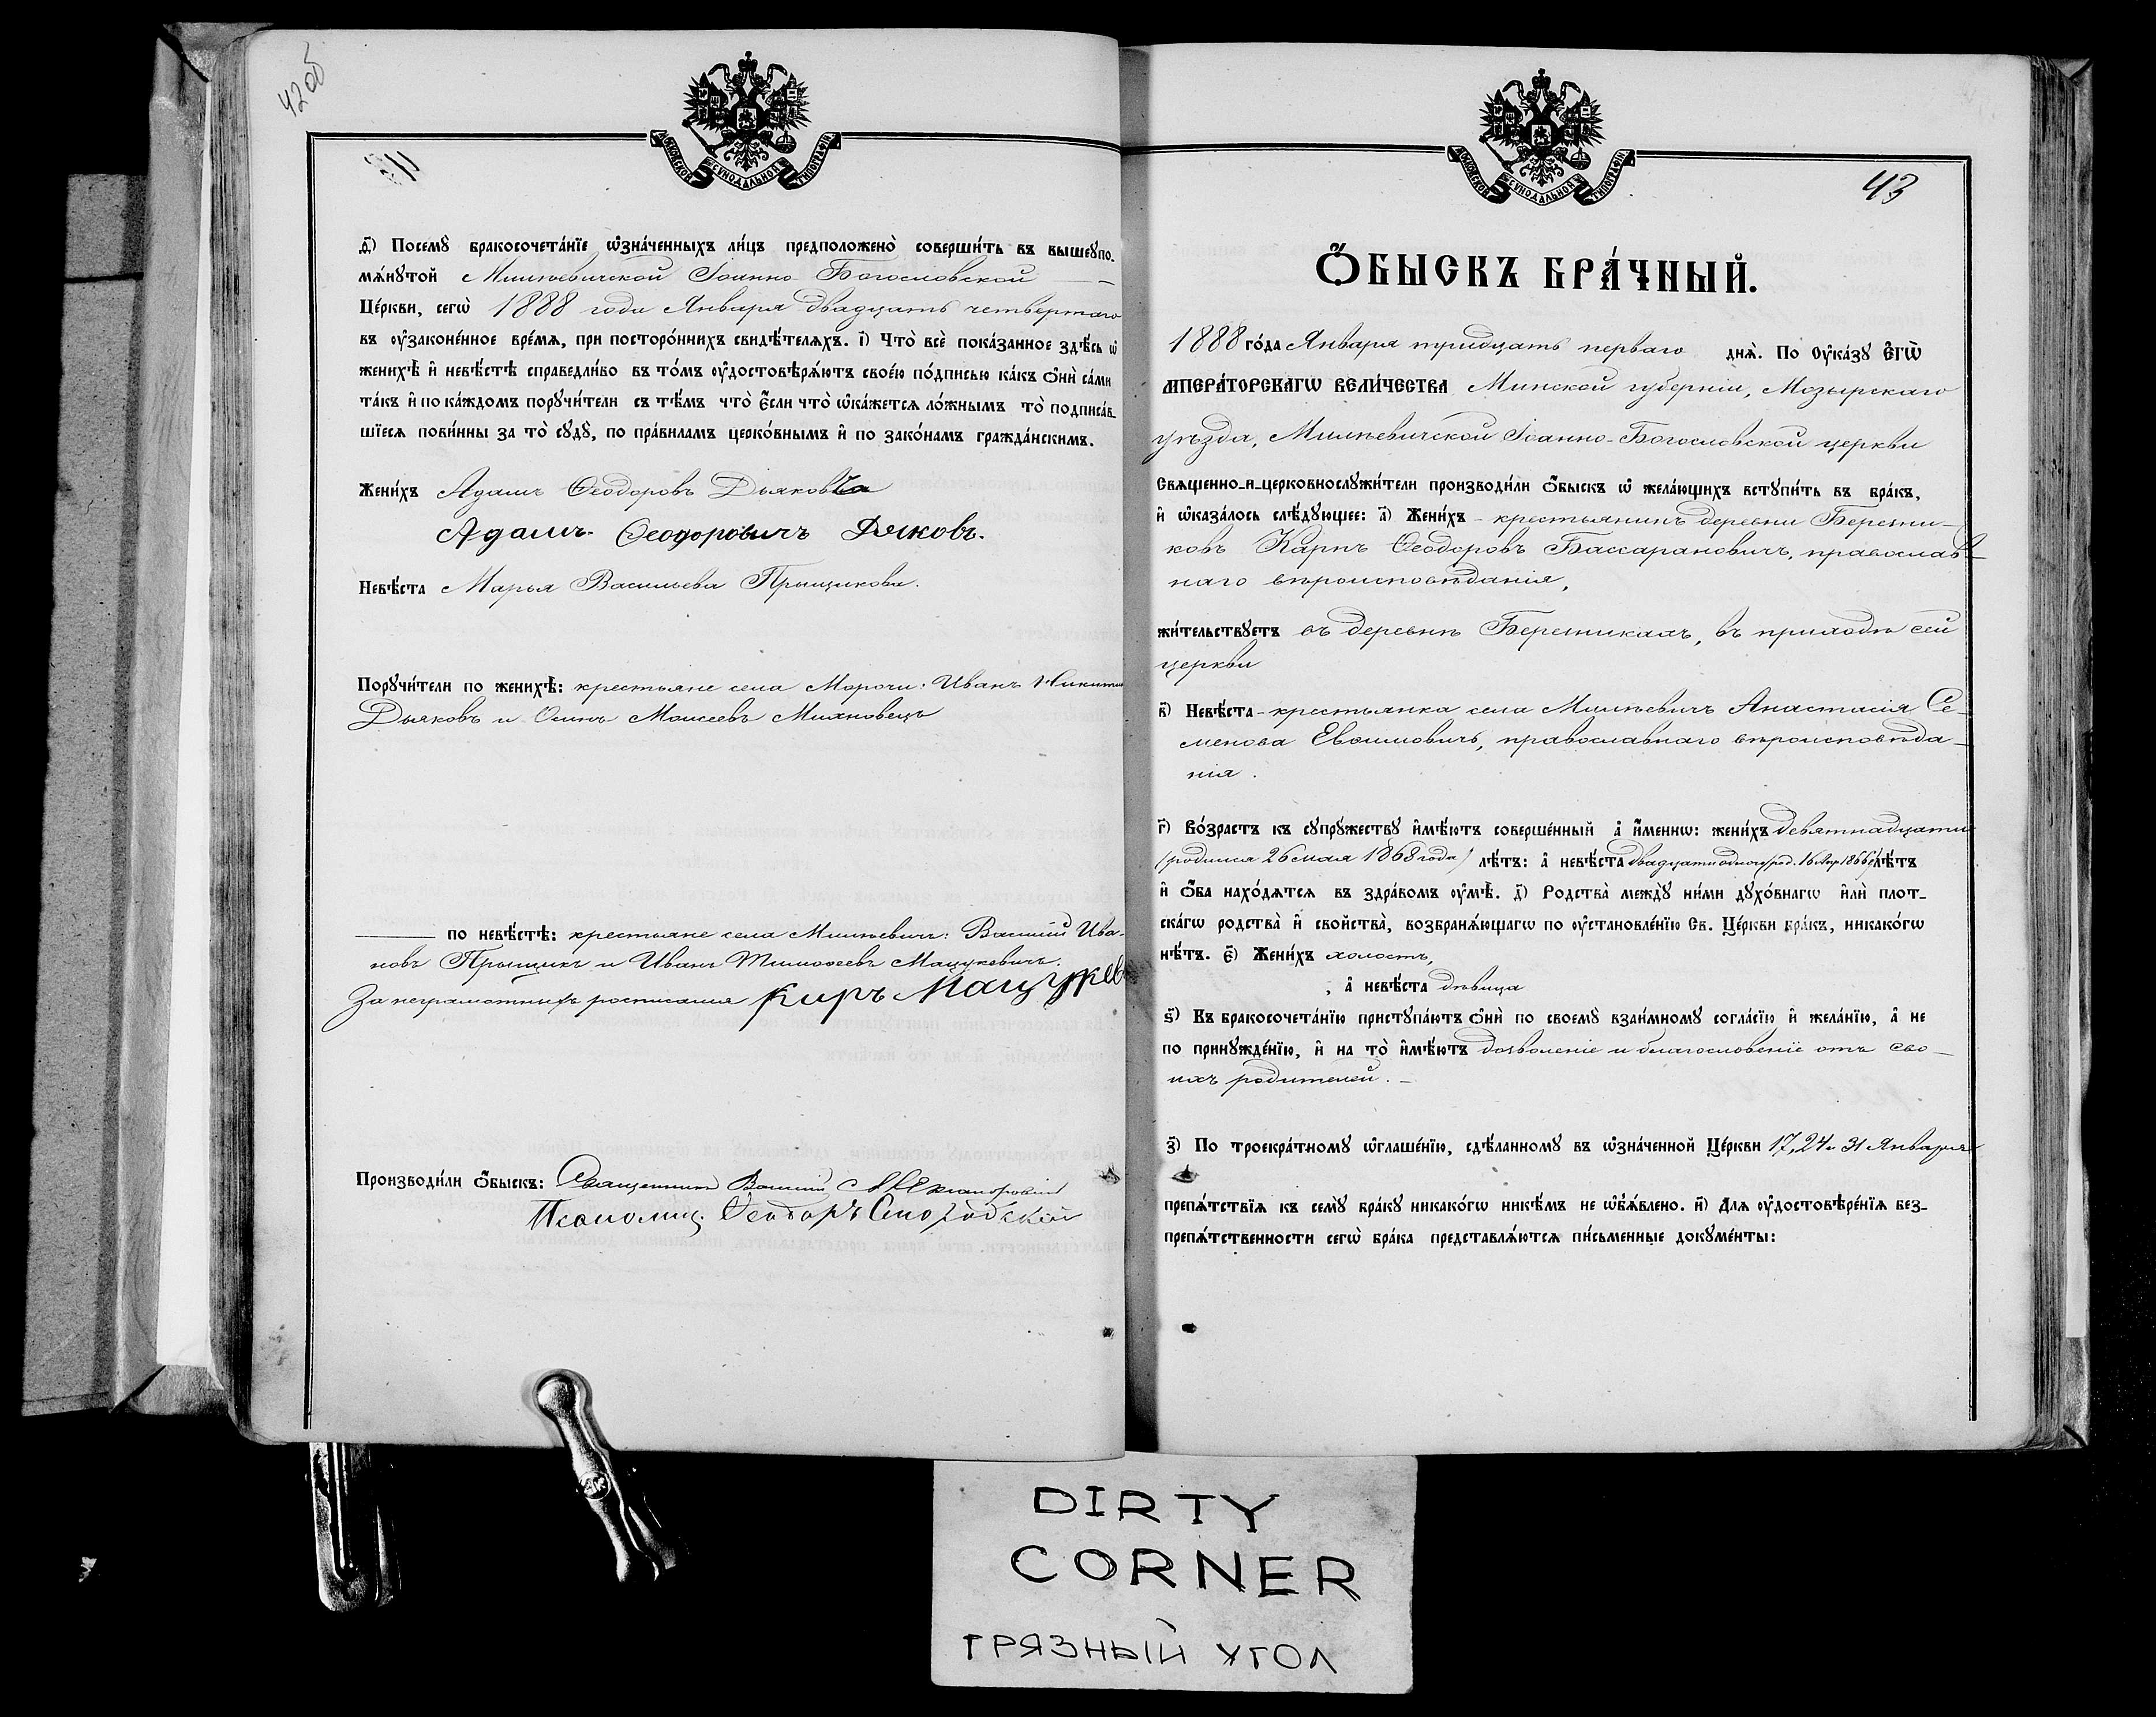 42 об
МОСКОВСКОЙ СѴНОДАЛЬНОЙ ТИПОГРАФІИ
ѳ҃) Посемꙋ бракосочета́нїе ѡ҆зна́ченныхъ ли́цъ предположено̀ соверши́ть въ вышеꙋпо-
мѧ́нꙋтой Милѣевичской Іоанно-Богословской
Це́ркви, сегѡ̀ 1888 года Января двадцать четвертаго
въ ᲂу҆законе́нное вре́мѧ, при посторо́ннихъ свидѣ́телѧхъ. і҃) Что̀ всѐ пока́занное здѣ́сь ѡ҆
женихѣ̀ и҆ невѣ́стѣ справедли́во въ то́мъ ᲂу҆достовѣрѧ́ютъ свое́ю по́дписью ка́къ ѻ҆нѝ са́ми
та́къ и҆ по ка́ждомъ порꙋчи́тели съ тѣ́мъ что̀ є҆́сли что̀ ѡ҆ка́жетсѧ ло́жнымъ то̀ подписа́в-
шїесѧ пови́нны за то̀ сꙋдꙋ̀, по пра́виламъ церко́внымъ и҆ по зако́намъ гражда́нскимъ.
Жени́хъ Адамъ Ѳеодоровъ Дьяковъ
Адамъ Ѳеодоровичъ Дяковъ.
Невѣ́ста Марья Васильева Прыщикова.
Порꙋчи́тели по женихѣ̀: крестьяне села Морочи: Иванъ Никитинъ
Дьяковъ и Осипъ Моисеевъ Михновецъ
по невѣ́стѣ: крестьяне села Милѣевичъ: Василій Ива-
новъ Прыщикъ и Иванъ Тимоѳеевъ Мацукевичъ.
За неграмотныхъ росписался Киръ Мацукев
Производи́ли ѻ҆́быскъ: Священникъ Василій Александровичъ
Псаломщ. Ѳеодоръ
43
МОСКОВСКОЙ СѴНОДАЛЬНОЙ ТИПОГРАФІИ
Ѻ҆́БЫСКЪ БРА́ЧНЫЙ.
1888 го́да Января тридцать перваго днѧ̀. По ᲂу҆ка́зꙋ Є҆ГѠ̀
ИМПЕРА́ТОРСКАГѠ ВЕЛИ́ЧЕСТВА Минской губерніи, Мозырскаго
уѣзда, Милѣевичской Іоанно-Богословской церкви
Свѧщенно-и-церковнослꙋжи́тели производи́ли ѻ҆́быскъ ѡ҆ жела́ющихъ встꙋпи́ть въ бра́къ,
и҆ ѡ҆каза́лось слѣ́дꙋющее: а҃) Жени́хъ - крестьянинъ деревни Бережни-
ковъ Карпъ Ѳеодоровъ Бассарановичъ, православ-
наго вѣроисповѣданія,
жи́тельствꙋетъ въ деревнѣ Бережникахъ, въ приходѣ сей
церкви
в҃) Невѣ́ста - крестьянка села Милѣевичъ Анастасія Се-
менова Евѳимовичъ, православнаго вѣроисповѣда-
нія.
г҃) Во́зрастъ къ сꙋпрꙋжествꙋ и҆мѣ́ютъ соверше́нный а҆ и҆́меннѡ: жени́хъ девятнадцати
(родился 26 мая 1868 года) лѣ́тъ: а҆ невѣ́ста двадцати одного (род. 16 Апр 1866) лѣ́тъ
и҆ ѻ҆́ба нахо́дѧтсѧ въ здра́вомъ ᲂу҆мѣ̀. д҃) Родства̀ междꙋ̀ ни́ми дꙋхо́внагѡ и҆лѝ плот-
ска́гѡ родства̀ и҆ свойства̀, возбранѧ́ющагѡ по ᲂу҆становле́нїю Св. Це́ркви бра́къ, никако́гѡ
нѣ́тъ. є҃) Жени́хъ холостъ,
, а҆ невѣ́ста дѣвица
ѕ҃) Къ бракосочета́нїю пристꙋпа́ютъ ѻ҆нѝ по своемꙋ̀ взаи́мномꙋ согла́сїю и҆ жела́нїю, а҆ не
по принꙋжде́нїю, и҆ на то̀ и҆мѣ́ютъ дозволеніе и благословеніе отъ сво-
ихъ родителей. -
з҃) По троекра́тномꙋ ѡ҆глаше́нїю, сдѣ́ланномꙋ въ ѡ҆зна́ченной Це́ркви 17, 24 и 31 Января
препѧ́тствїѧ къ семꙋ̀ бра́кꙋ никако́гѡ никѣ́мъ не ѡ҆б̾ѧ́влено. и҃) Длѧ ᲂу҆достовѣре́нїѧ без-
препѧ́тственности сегѡ̀ бра́ка представлѧ́ютсѧ пи́сьменные докꙋме́нты:
DIRTY
CORNER
ГРЯЗНЫЙ УГОЛ